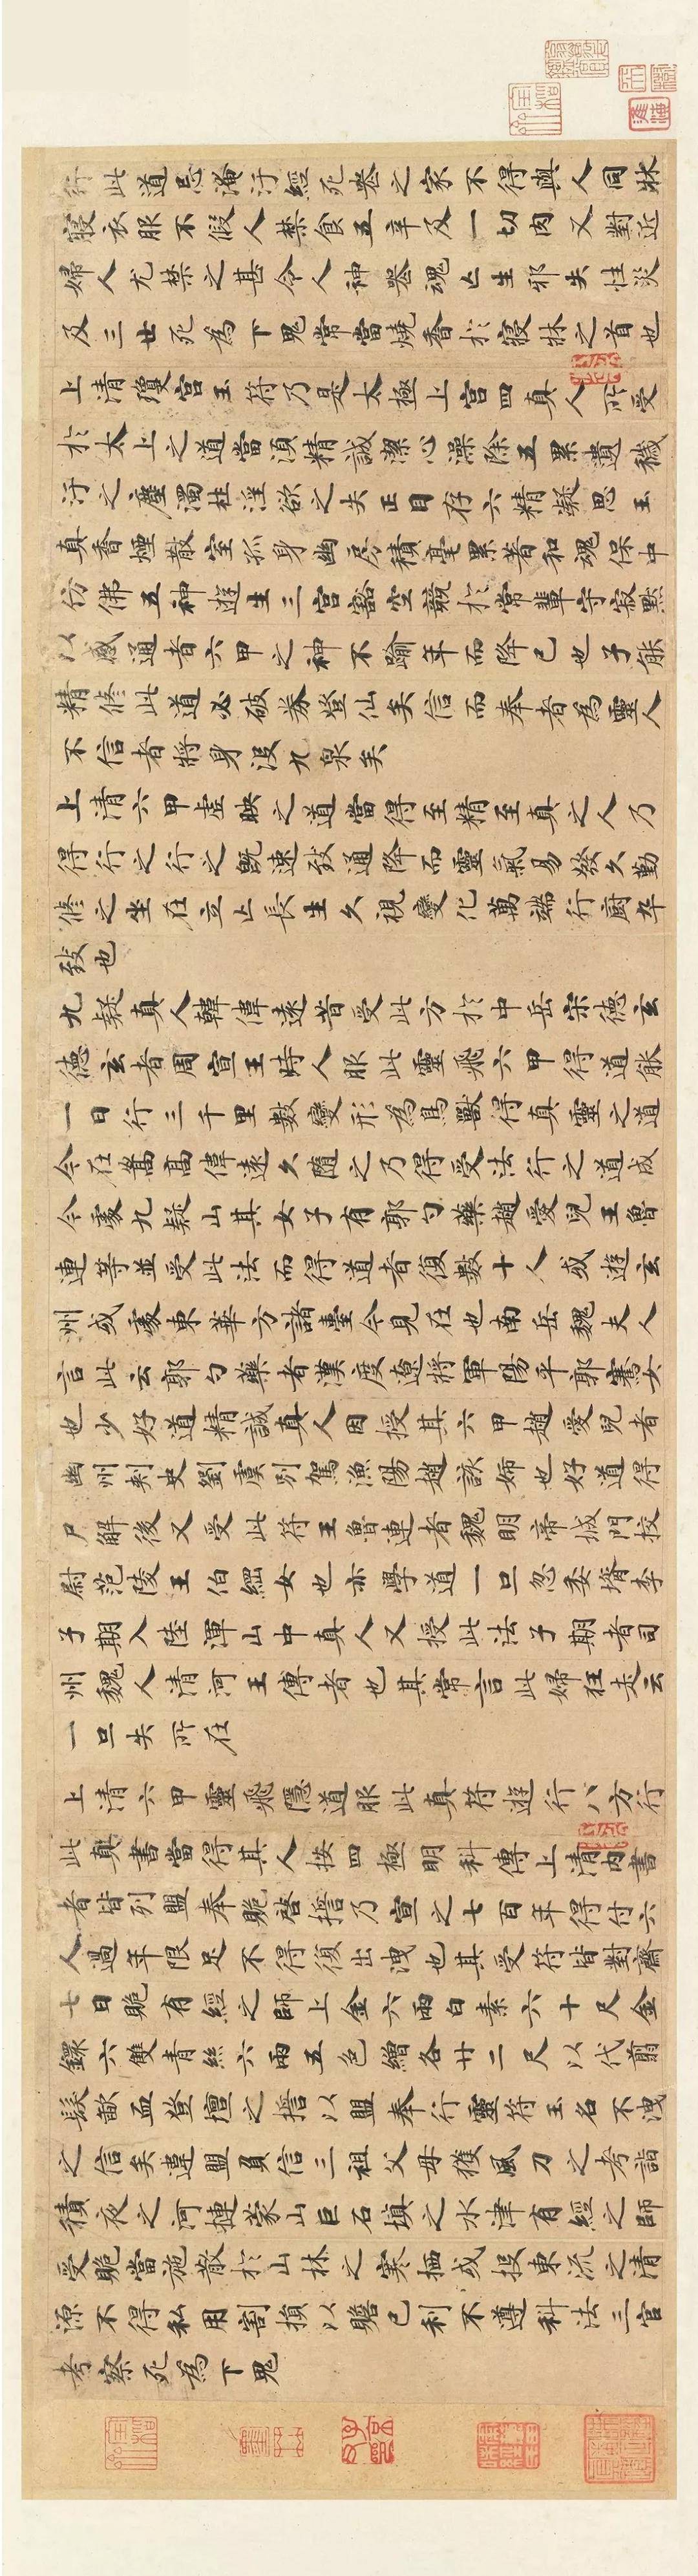 行此道忌淹汙經死喪之家不得與人同牀
寢衣服不假人禁食五辛及一切肉又對近
婦人尤禁之甚令人神喪魂亡生邪失性災
及三世死為下鬼常當燒香於寢牀之首也
上清瓊宮玉符乃是太極上宮四真人所受
於太上之道當須精誠潔心澡除五累遺穢
汙之塵濁杜淫欲之失正目存六精凝思玉
真香煙散室孤身幽房積毫累著和魂保中
仿佛五神遊生三宮豁空競於常輩守寂默
以感通者六甲之神不踰年而降已也子能
精修此道必破券登仙矣信而奉者為靈人
不信者將身沒九泉矣
上清六甲虛映之道當得至精至真之人乃
得行之行之既速致通降而靈氣易發久勤
修之坐在立亡長生久視變化萬端行廚卒
致也
九疑真人韓偉遠昔受此方於中岳宋德玄
德玄者周宣王時人服此靈飛六甲得道能
一日行三千里數變形為鳥獸得真靈之道
今在嵩高偉遠久隨之乃得受法行之道成
今處九疑山其女子有郭勺藥趙愛兒王魯
連等並受此法而得道者復數十人或遊玄
州或處東華方諸臺今見在也南岳魏夫人
言此云郭勺藥者漢度遼將軍陽平郭騫女
也少好道精誠真人因授其六甲趙愛兒者
幽州刺史劉虞別駕漁陽趙該婦也好道得
尸解後又受此符王魯連者魏明帝城門校
尉范陵王伯綱女也亦學道一旦忽委壻李
子期入陸渾山中真人又授此法子期者司
州魏人清河王傳者也其常言此婦狂走云
一旦失所在
上清六甲靈飛隱道服此真符遊行八方行
此真書當得其人按四極明科傳上清內書
者皆列盟奉跪啓誓乃宣之七百年得付六
人過年限足不得復出洩也其受符皆對齋
七日賝有經之師上金六兩白素六十尺金
鐶六雙青絲六兩五色繒各廿二尺以代翦
髮歃血登壇之誓以盟奉行靈符玉名不洩
之信矣違盟負信三祖父母獲風刀之考詣
積夜之河摙蒙山巨石填之水津有經之師
受賝當施散於山林之寒栖或投東流之清
源不得私用割損以贍己利不遵科法三官
考察死為下鬼